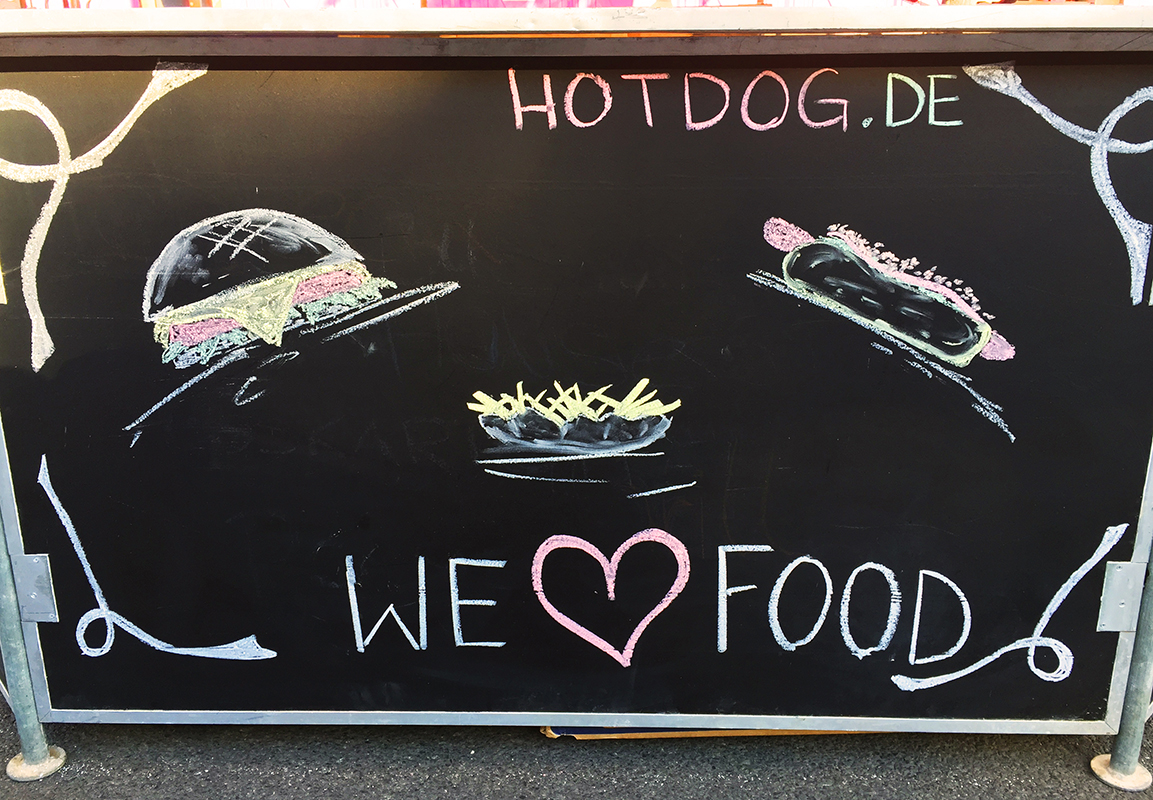 HOTDOG.DE
WE ♥ FOOD